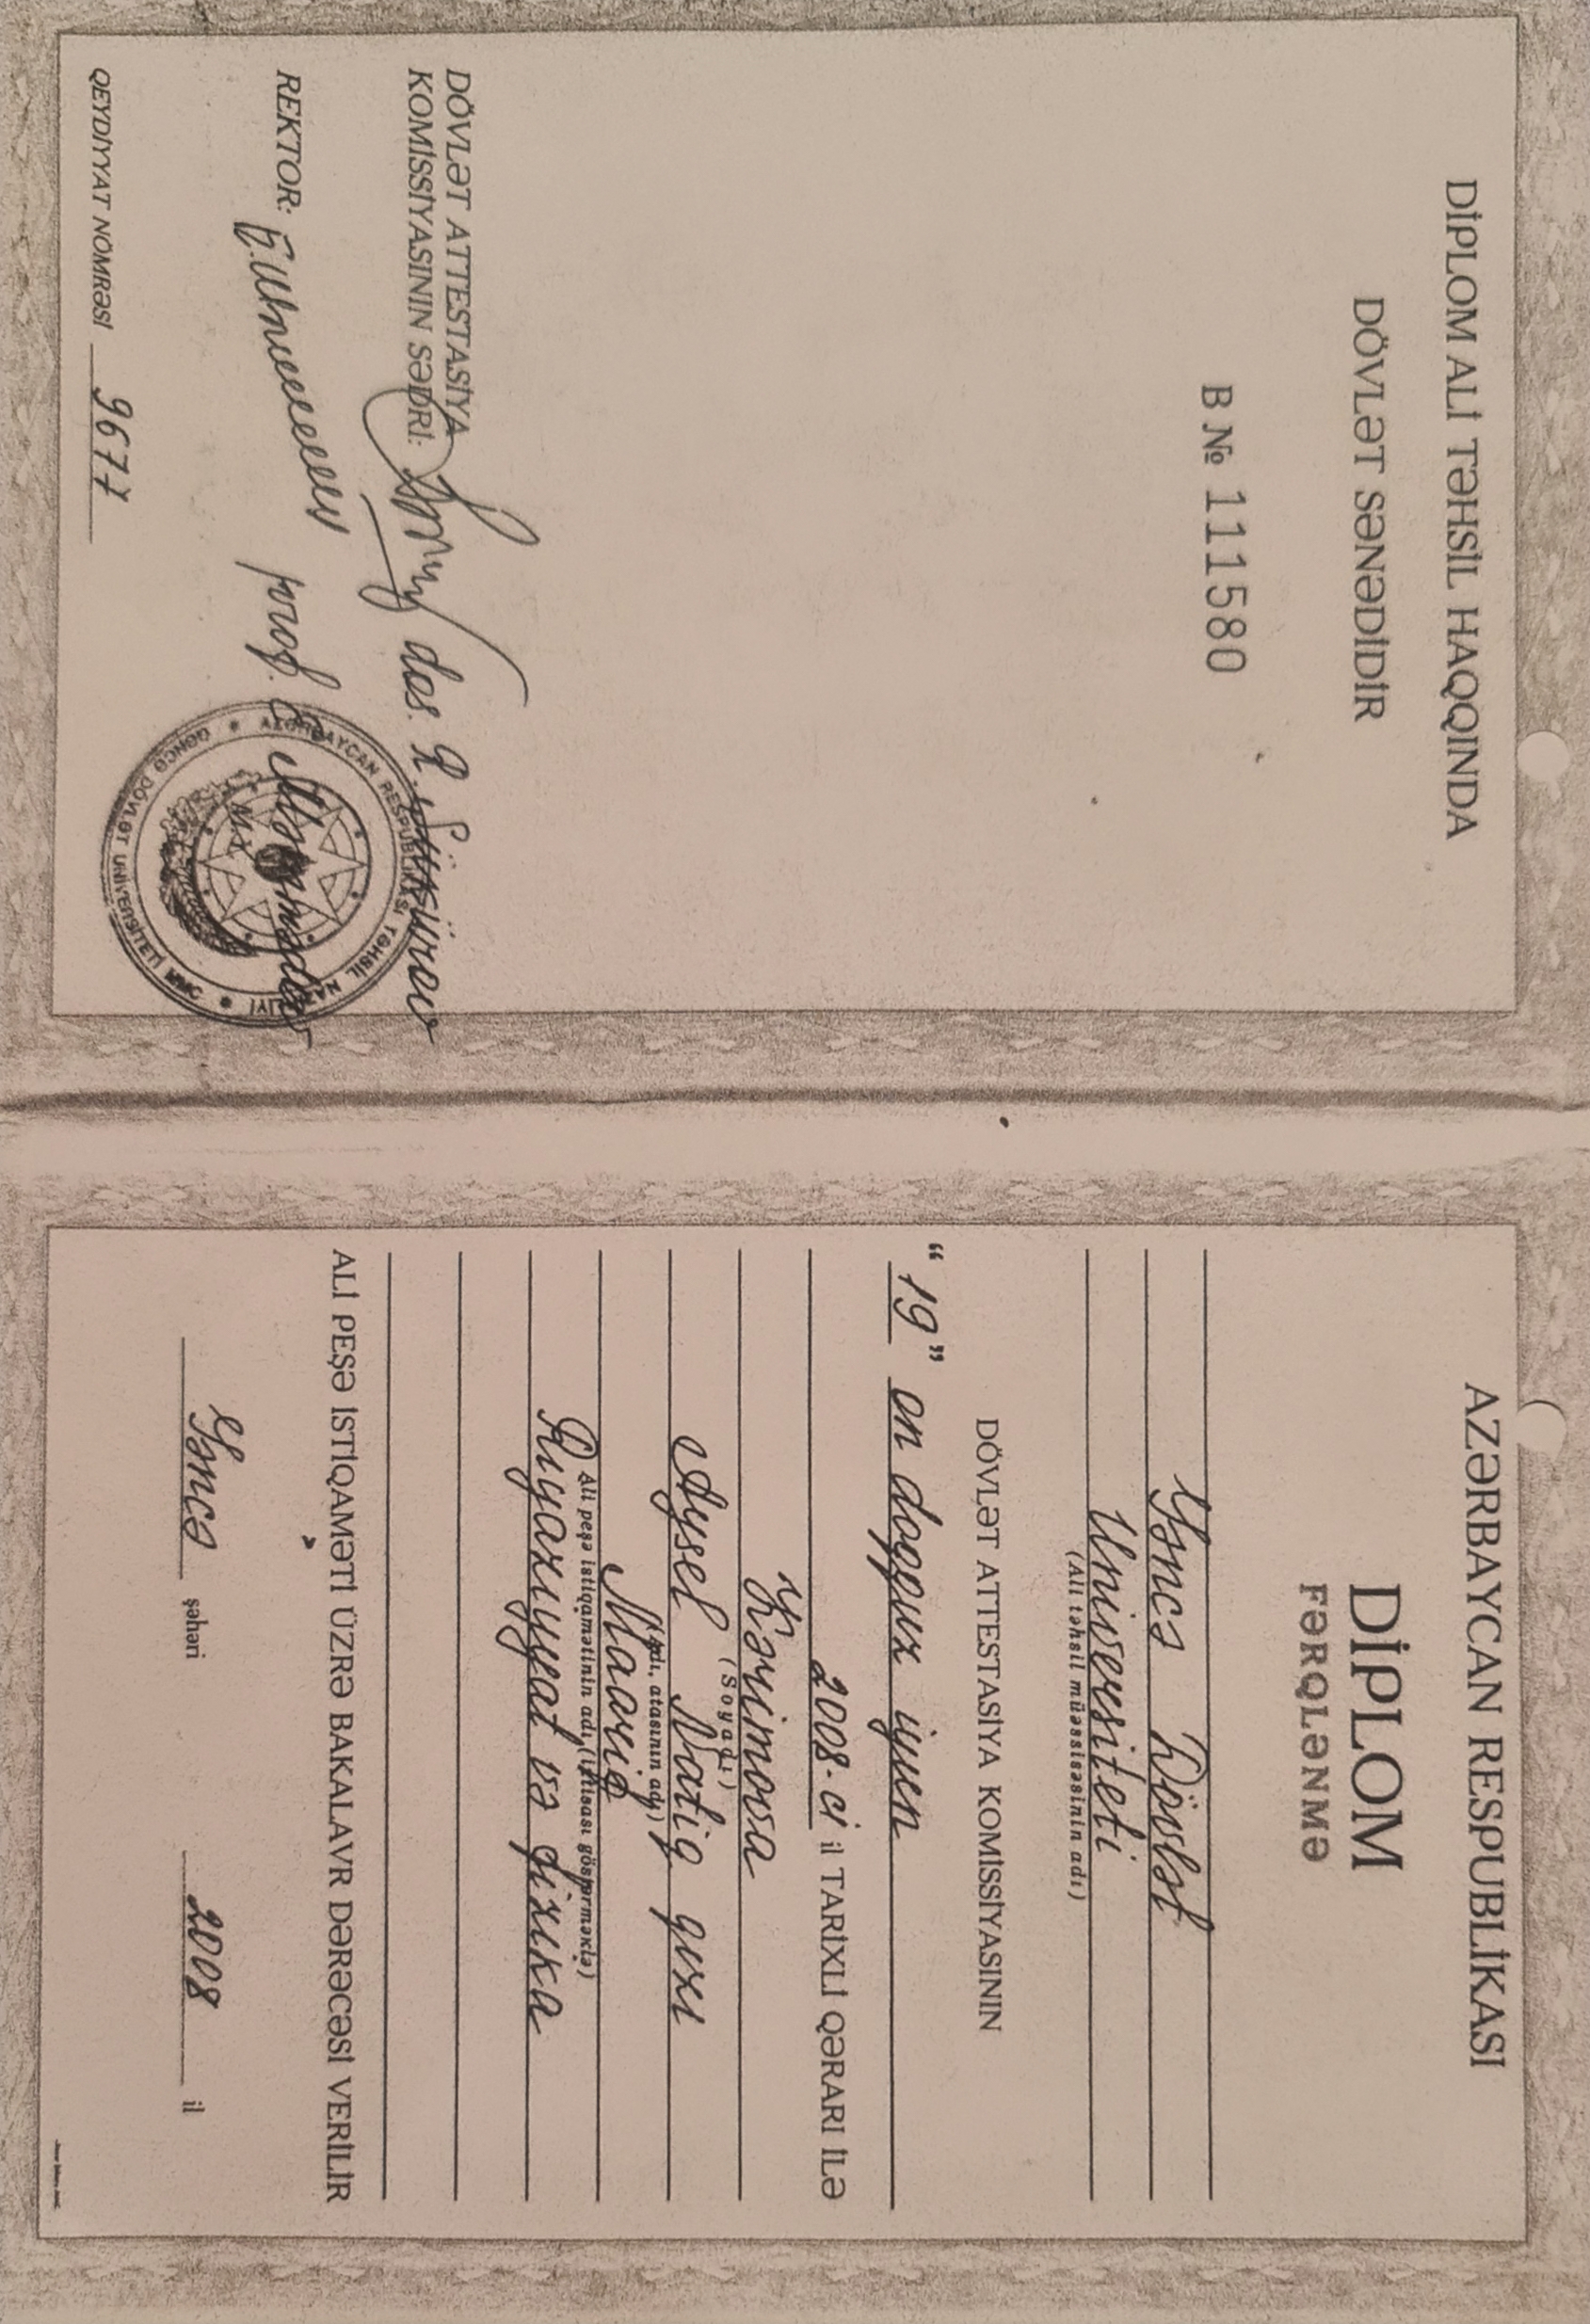 DİPLOM ALİ TƏHSİL HAQQINDA
DÖVLƏT SƏNƏDİDİR
B № 111580
DÖVLƏT ATTESTASİYA
KOMİSSİYASININ SƏDRİ:
dos. Q. Şükürov
REKTOR:
prof.
M.Y.
AZƏRBAYCAN RESPUBLİKASI TƏHSİL NAZİRLİYİ
GƏNCƏ DÖVLƏT UNİVERSİTETİ MMC
QEYDİYYAT NÖMRƏSİ 9677
AZƏRBAYCAN RESPUBLİKASI
DİPLOM
FƏRQLƏNMƏ
Gəncə Dövlət
Universiteti
(Ali təhsil müəssisəsinin adı)
DÖVLƏT ATTESTASİYA KOMİSSİYASININ
“19” on doqquz iyun
2008-ci il TARİXLİ QƏRARI İLƏ
Kərimova
(Soyadı)
Aysel Natiq qızı
(Adı, atasının adı)
Maarif
Ali peşə istiqamətinin adı, (ixtisası göstərməklə)
Riyaziyyat və fizika
ALİ PEŞƏ İSTİQAMƏTİ ÜZRƏ BAKALAVR DƏRƏCƏSİ VERİLİR
Gəncə şəhəri 2008 il